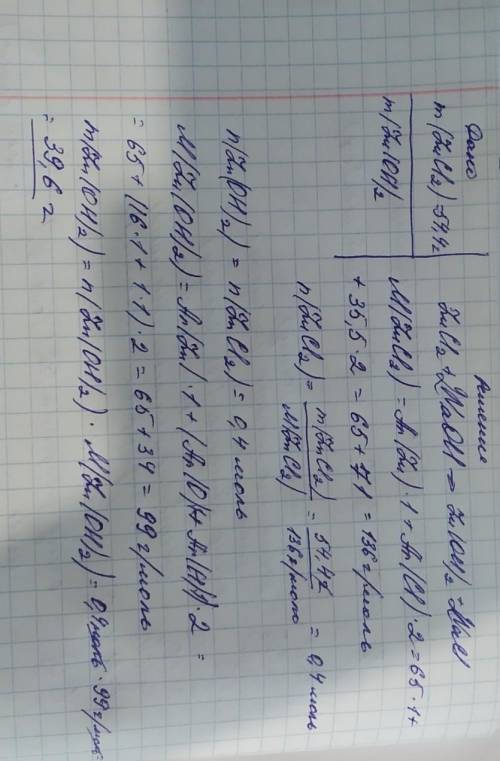 Дано
m(ZnCl2)=54,4г
m(Zn(OH)2
Решение
ZnCl2 + 2NaOH → Zn(OH)2 + 2NaCl
M(ZnCl2) = Ar(Zn)·1 + Ar(Cl)·2 = 65·1+
+ 35,5·2 = 65+71 = 136 г/моль
n(ZnCl2) = m(ZnCl2) / M(ZnCl2) = 54,4г / 136г/моль = 0,4 моль
n(Zn(OH)2) = n(ZnCl2) = 0,4 моль
M(Zn(OH)2) = Ar(Zn)·1 + (Ar(O)·1 + Ar(H)·1)·2 =
= 65 + (16·1 + 1·1)·2 = 65+34 = 99 г/моль
m(Zn(OH)2) = n(Zn(OH)2) · M(Zn(OH)2) = 0,4моль · 99г/моль=
= 39,6 г